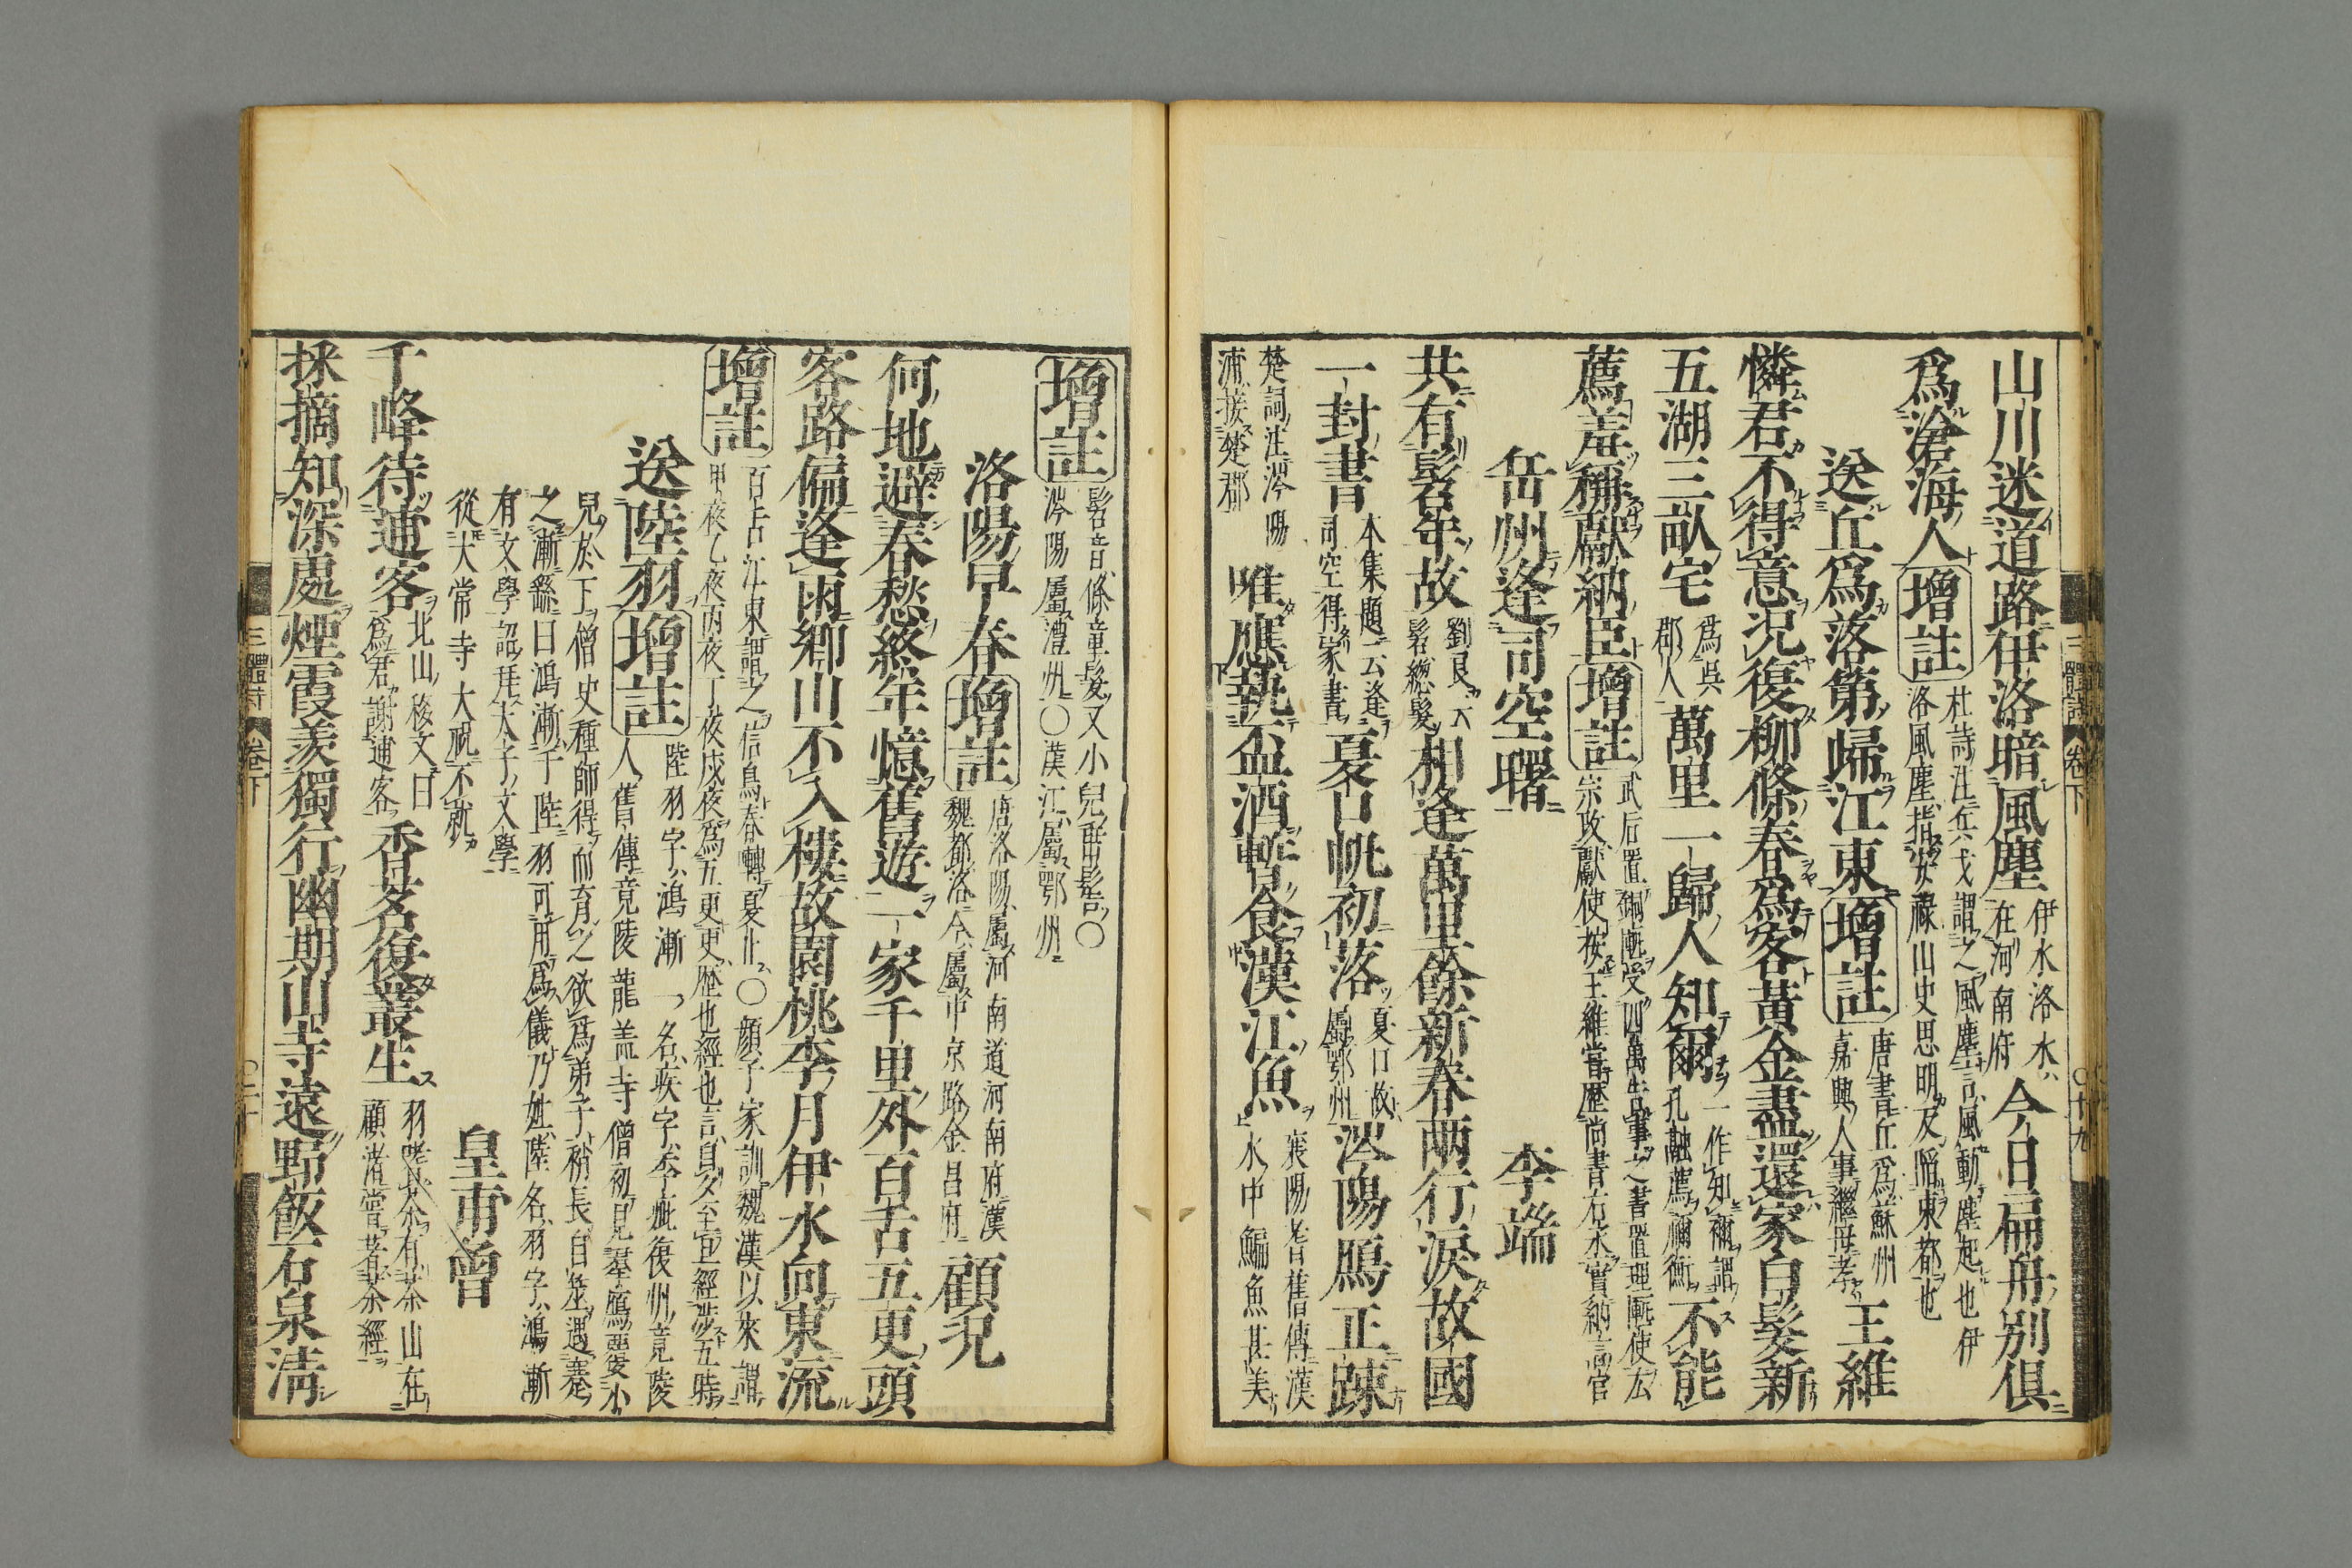 山川迷道路伊洛暗風塵 伊水洛水在河南府 今日扁舟別俱
爲滄海人 增註 杜詩注兵戈謂之風塵言風動塵起也伊洛風塵指安祿山史思明及陷東都也
送丘爲落第歸江東 增註 唐書丘爲蘇州嘉興人事繼母孝 王維
憐君不得意況復柳條春爲客黃金盡還家白髮新
五湖三畝宅 爲吳郡人 萬里一歸人知爾 一作知禰謂孔融薦禰衡 不能
薦羞稱獻納臣 增註 武后置銅匭受四方告事之書置理匭使玄宗改獻使按王維嘗歷尚書右丞實納言官
岳州逢司空曙 李端
共有髫年故 劉良云髫總髮 相逢萬里餘新春兩行淚故國
一封書 本集題云逢司空得家書 夏口帆初落 夏口故屬鄂州 涔陽鴈正疎
楚詞注涔陽浦接楚郡 唯應執盃酒暫食漢江魚 襄陽耆舊傳漢水中鯿魚甚美
三體詩 卷下 〇十九
增註 髫音條童髮又小兒垂髫〇涔陽屬澧州〇漢江屬鄂州
洛陽早春 增註 唐洛陽屬河南道河南府漢魏都洛今屬中京路金昌府 顧況
何地避春愁終年憶舊遊一家千里外百舌五更頭
客路偏逢雨鄉山不入樓故園桃李月伊水向東流
增註 百舌江東謂之信鳥春轉夏止〇顔子家訓魏漢以來謂甲夜乙夜丙夜丁夜戊夜爲五更更歷也經也言自夕至宜經涉五時
送陸羽 增註 陸羽字鴻漸一名疾字季疵復州竟陵人舊傳竟陵龍盖寺僧初見羣鴈覆小
兒於下僧史種師得而育之欲爲弟子稍長自筮遇蹇
之漸繇曰鴻漸于陸羽可用爲儀乃姓陸名羽字鴻漸
有文學詔拜太子文學
從太常寺大祝不就 皇甫曾
千峰待逋客 北山移文曰爲君謝逋客 香茗復叢生 羽嗜茶有茶山在顧渚嘗著茶經
採摘知深處煙霞羨獨行幽期山寺遠野飯石泉清
三體詩 卷下 〇二十